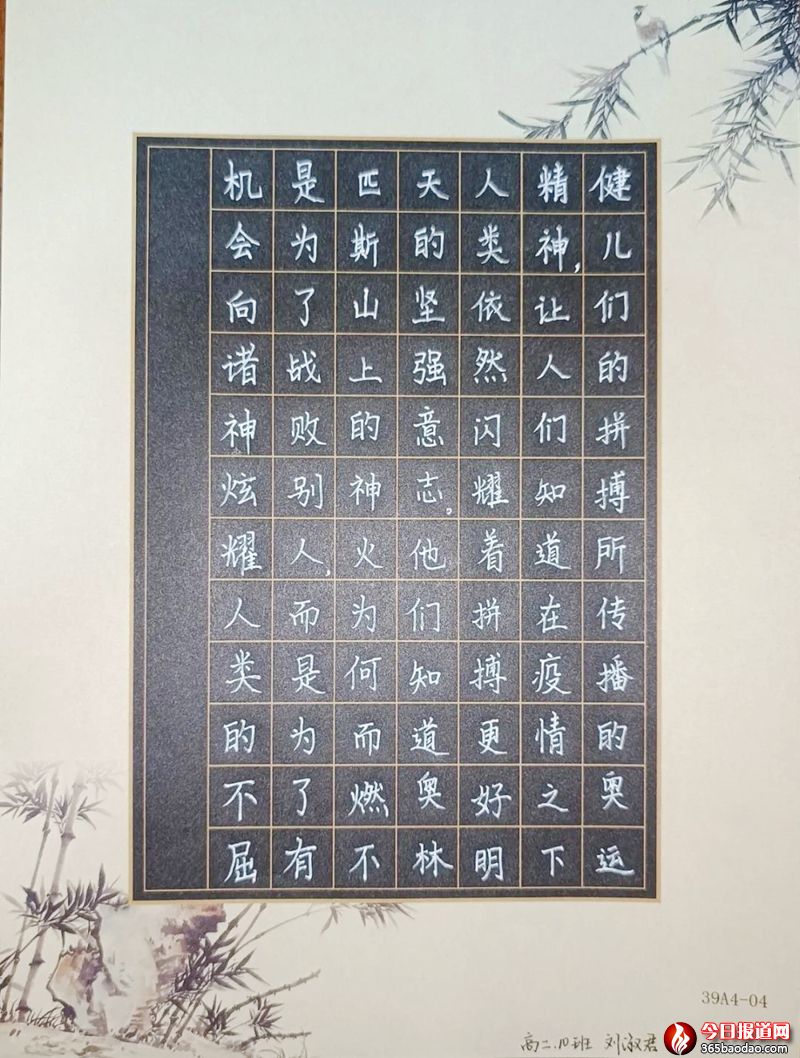 健儿们的拼搏所传播的奥运
精神,让人们知道在疫情之下
人类依然闪耀着拼搏更好明
天的坚强意志。他们知道奥林
匹斯山上的神火为何而燃不
是为了战败别人,而是为了有
机会向诸神炫耀人类的不屈
39A4-04
高二.10班 刘淑君
今日报道网
365baodao.com